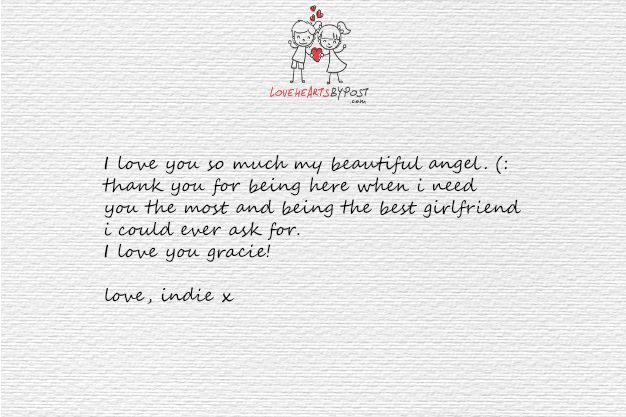 LOVEHEARTSBYPOST
.com
I love you so much my beautiful angel. (:
thank you for being here when i need
you the most and being the best girlfriend
i could ever ask for.
I love you gracie!
love, indie x